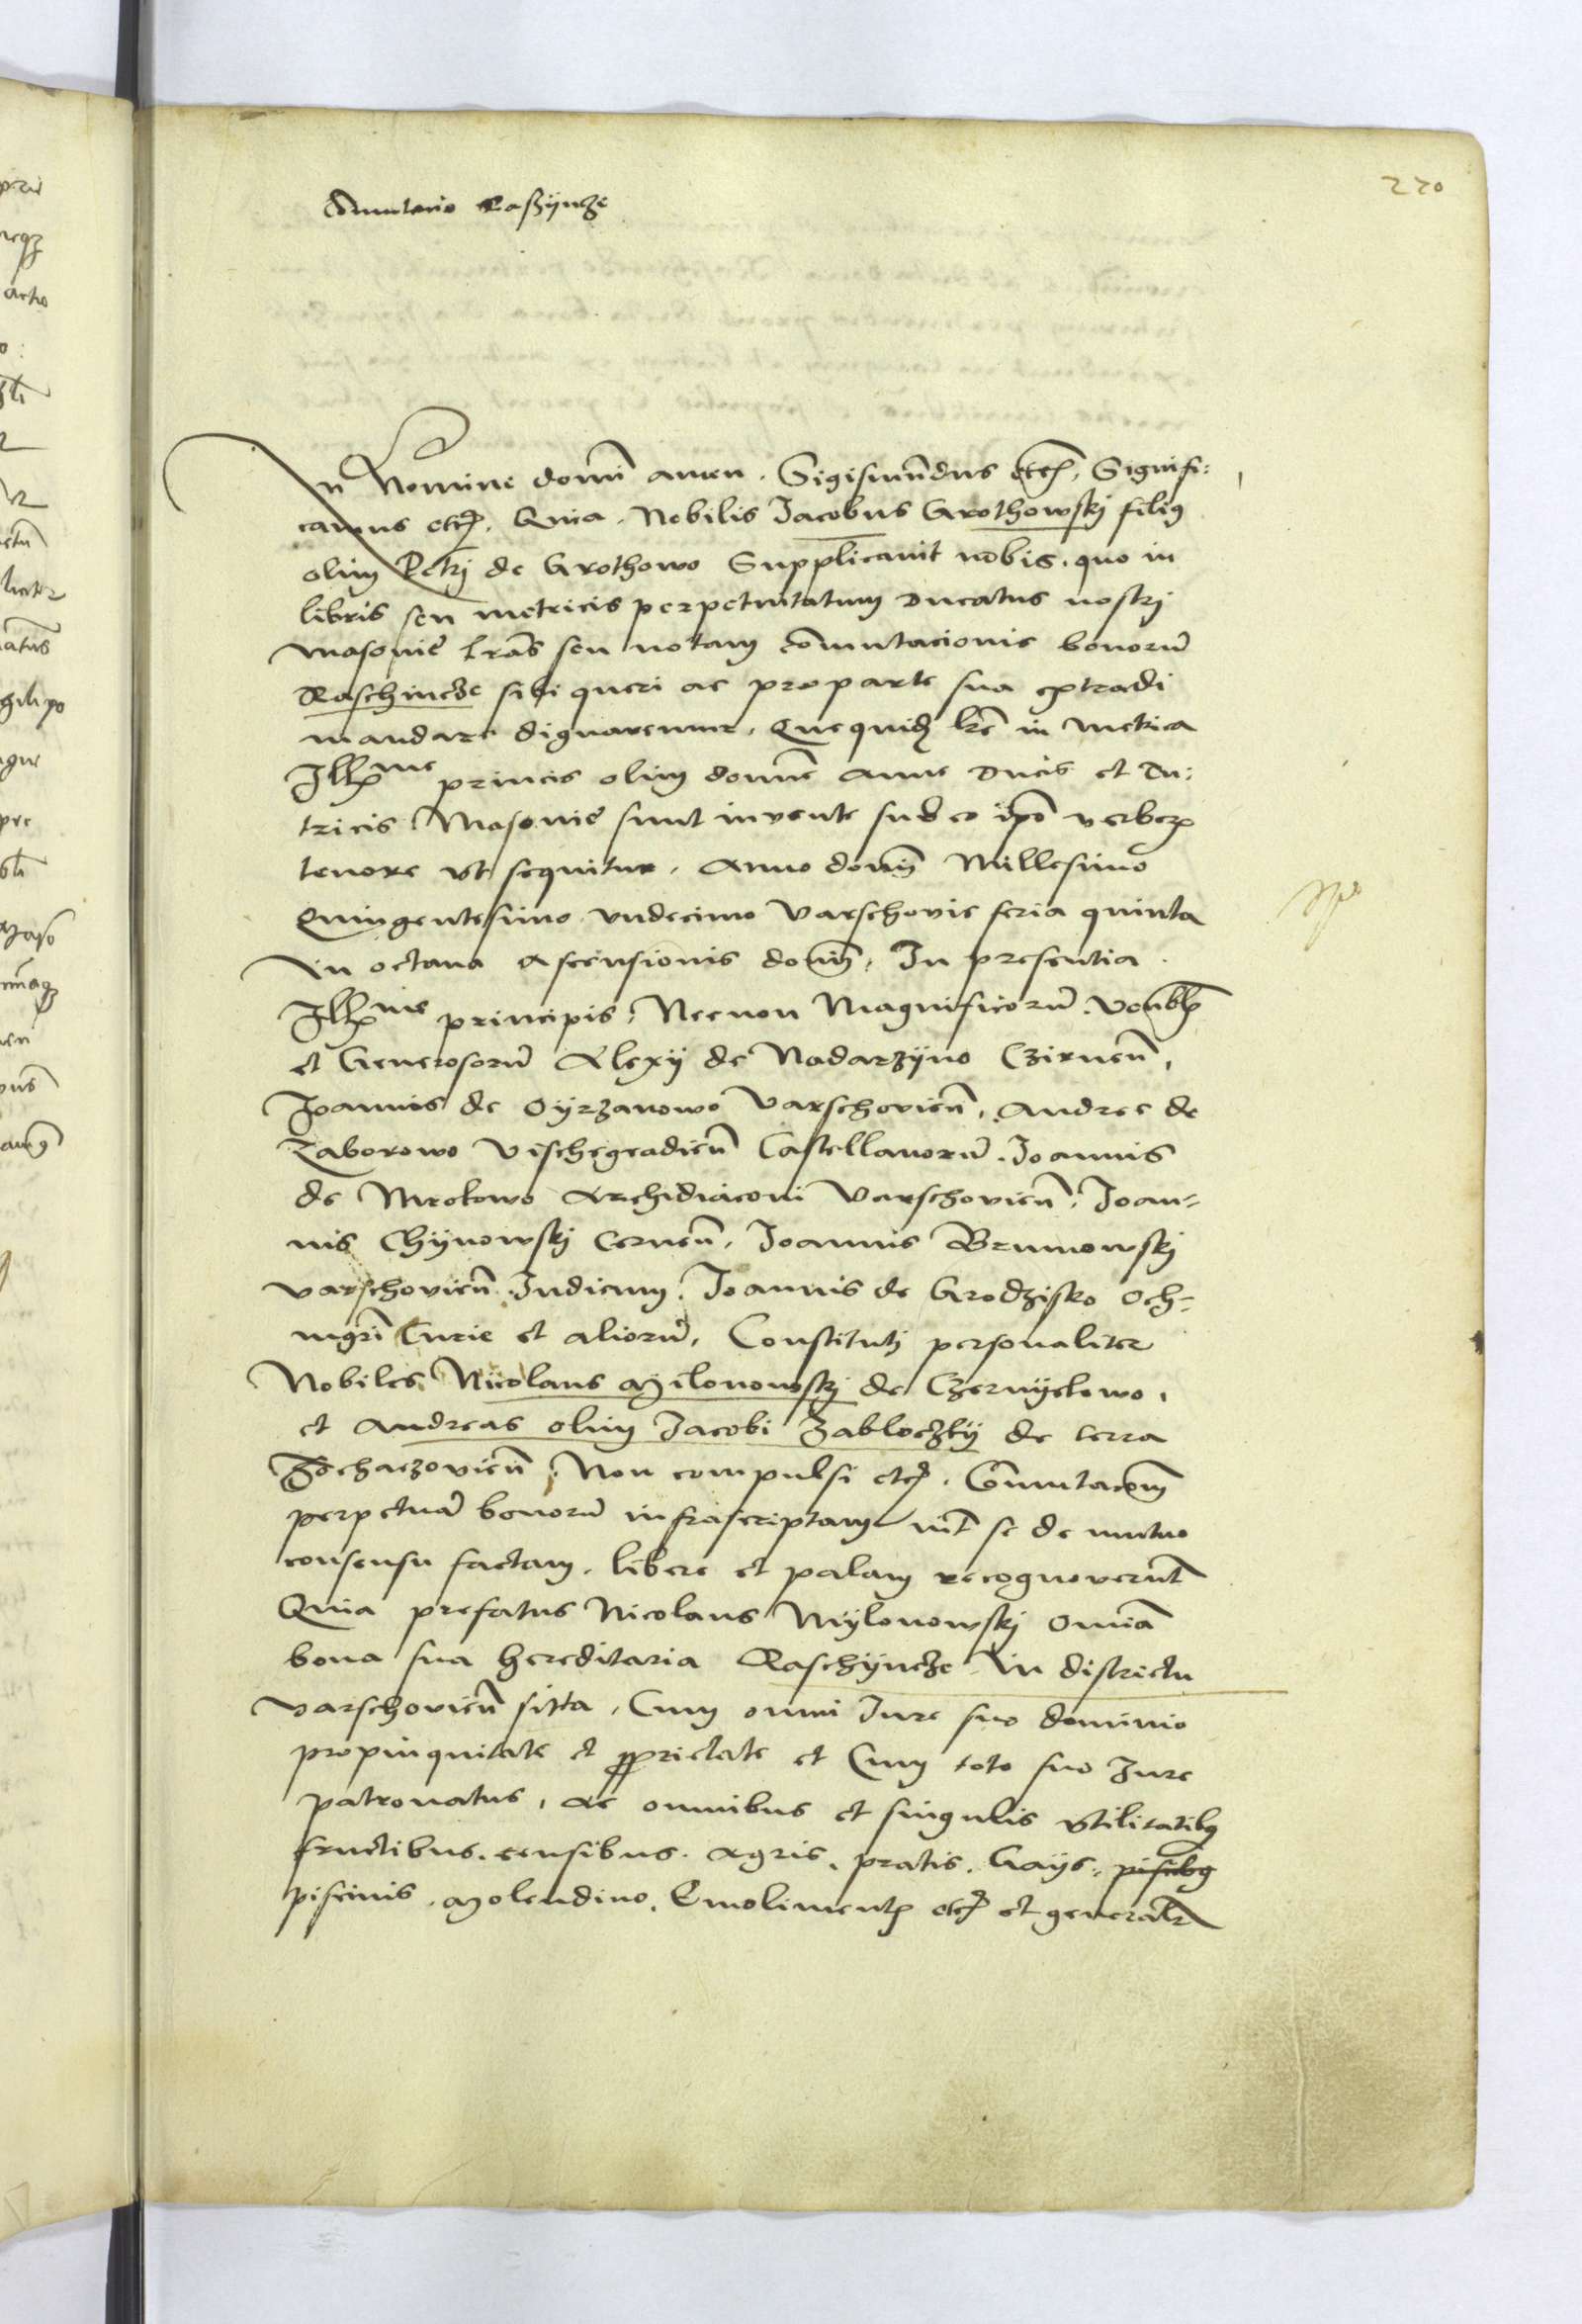 220
Comutatio Raszyncze
In Nomine domi amen. Sigismundus etc. Signifi:
camus etc. Quia. Nobilis Jacobus Grothowskj filius
olim Petrj de Grothowo Supplicauit nobis. quo in
libris seu metricis perpetuitatum Ducatus nostrj
Masouie lras seu notam comutacionis bonoru
Raschincze sibi queri ac pro parte sua extradi
mandare dignaremur. Que quid lre in metrica
Illme princis olim domne Anne Ducis et Du:
tricis Masouie sunt invente sub eo ipo verbor
tenore vt sequitur. Anno domi Millesimo
Quingentesimo vndecimo Varschovie feria quinta
in octaua Ascensionis domi. In presentia
Illme principis. Necnon Magnificoru. Venbl
et Generosoru Alexij de Nadarzijno Czirnen.
Joannis de Oijrzanowo Varschovien. Andree de
Zaborowo Vischegradien Castellanoru. Joannis
de Mrokowo Archidiaconi Varschovien. Joan=
nis Chijnowskj Cernen. Joannis Brumowskj
Varschovien Judicum. Joannis de Grodzisko Och=
mgri Curie et alioru. Constitutj personaliter
Nobiles Nicolaus Milonowskj de Czernijelowo.
et Andreas olim Jacobi Zabloczkij de terra
Sochaczovien. Non compulsi etc. Comutacom
perpetua bonoru infrascriptam int se de mutuo
consensu factam. libere et palam recognoverunt
Quia prefatus Nicolaus Mijlonowskj omia
bona sua hereditaria Raschijncze in districtu
Varschovien sitta. Cum omni Jure suo dominio
propinquitate et pprietate et Cum toto suo Jure
patronatus. ac omnibus et singulis vtilitatibus
fructibus. censibus. Agris. pratis. Gaijs. piscibus
piscinis. Molendino. Emolimentis etc et generalr